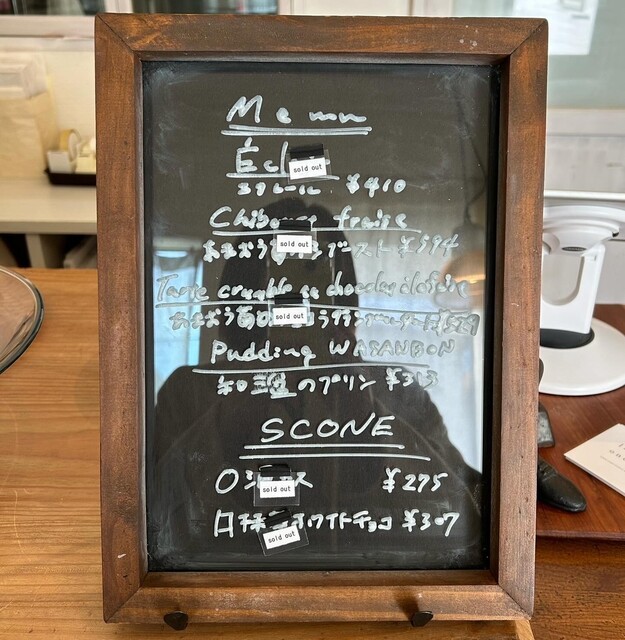 Menu
Écl sold out
エクレール ¥410
Chibouse fraise
sold out
あまおう ブースト ¥594
Tarte crumble au chocolat
sold out
あまおう
Pudding WASANBON
和三盆のプリン ¥313
SCONE
sold out ¥275
日本 ホワイトチョコ ¥307
sold out